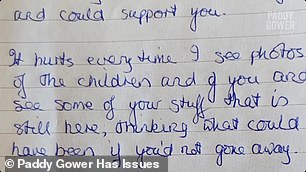 and could support you.
PADDY
GOWER
HAS ISSUES
It hurts everytime I see photos
of the children and of you and
see some of your stuff that is
still here, thinking what could
have been if you'd not gone away.
© Paddy Gower Has Issues